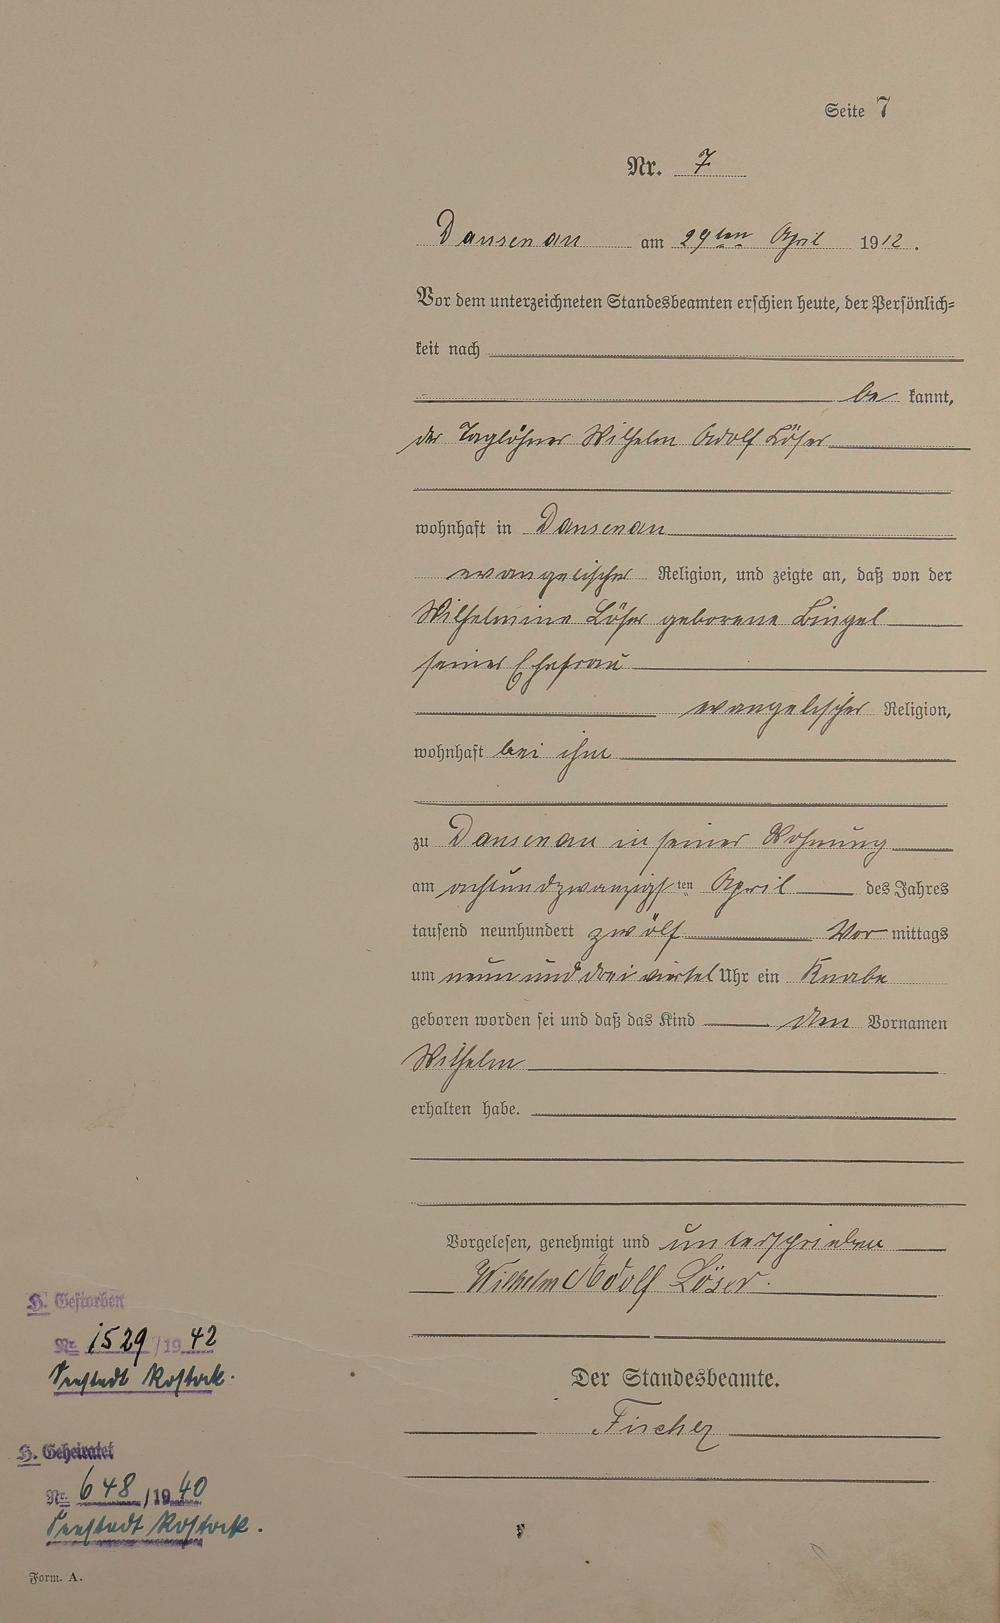 Seite 7
Nr. 7
Dausenau am 29ten April 1912.
Vor dem unterzeichneten Standesbeamten erschien heute, der Persönlich=
keit nach
be kannt,
der Taglöhner Wilhelm Adolf Löser
wohnhaft in Dausenau
evangelischer Religion, und zeigte an, daß von der
Wilhelmine Löser geborene Bingel
seiner Ehefrau
evangelischer Religion,
wohnhaft bei ihm
zu Dausenau in seiner Wohnung
am achtundzwanzigsten April des Jahres
tausend neunhundert zwölf Vor mittags
um neun und drei viertel Uhr ein Knabe
geboren worden sei und daß das Kind den Vornamen
Wilhelm
erhalten habe.
Vorgelesen, genehmigt und unterschrieben
Wilhelm Adolf Löser.
Der Standesbeamte.
Fischer
H. Gestorben
Nr. 1529/1942
Seestadt Rostock.
H. Geheiratet
Nr. 648/1940
Seestadt Rostock.
Form. A.